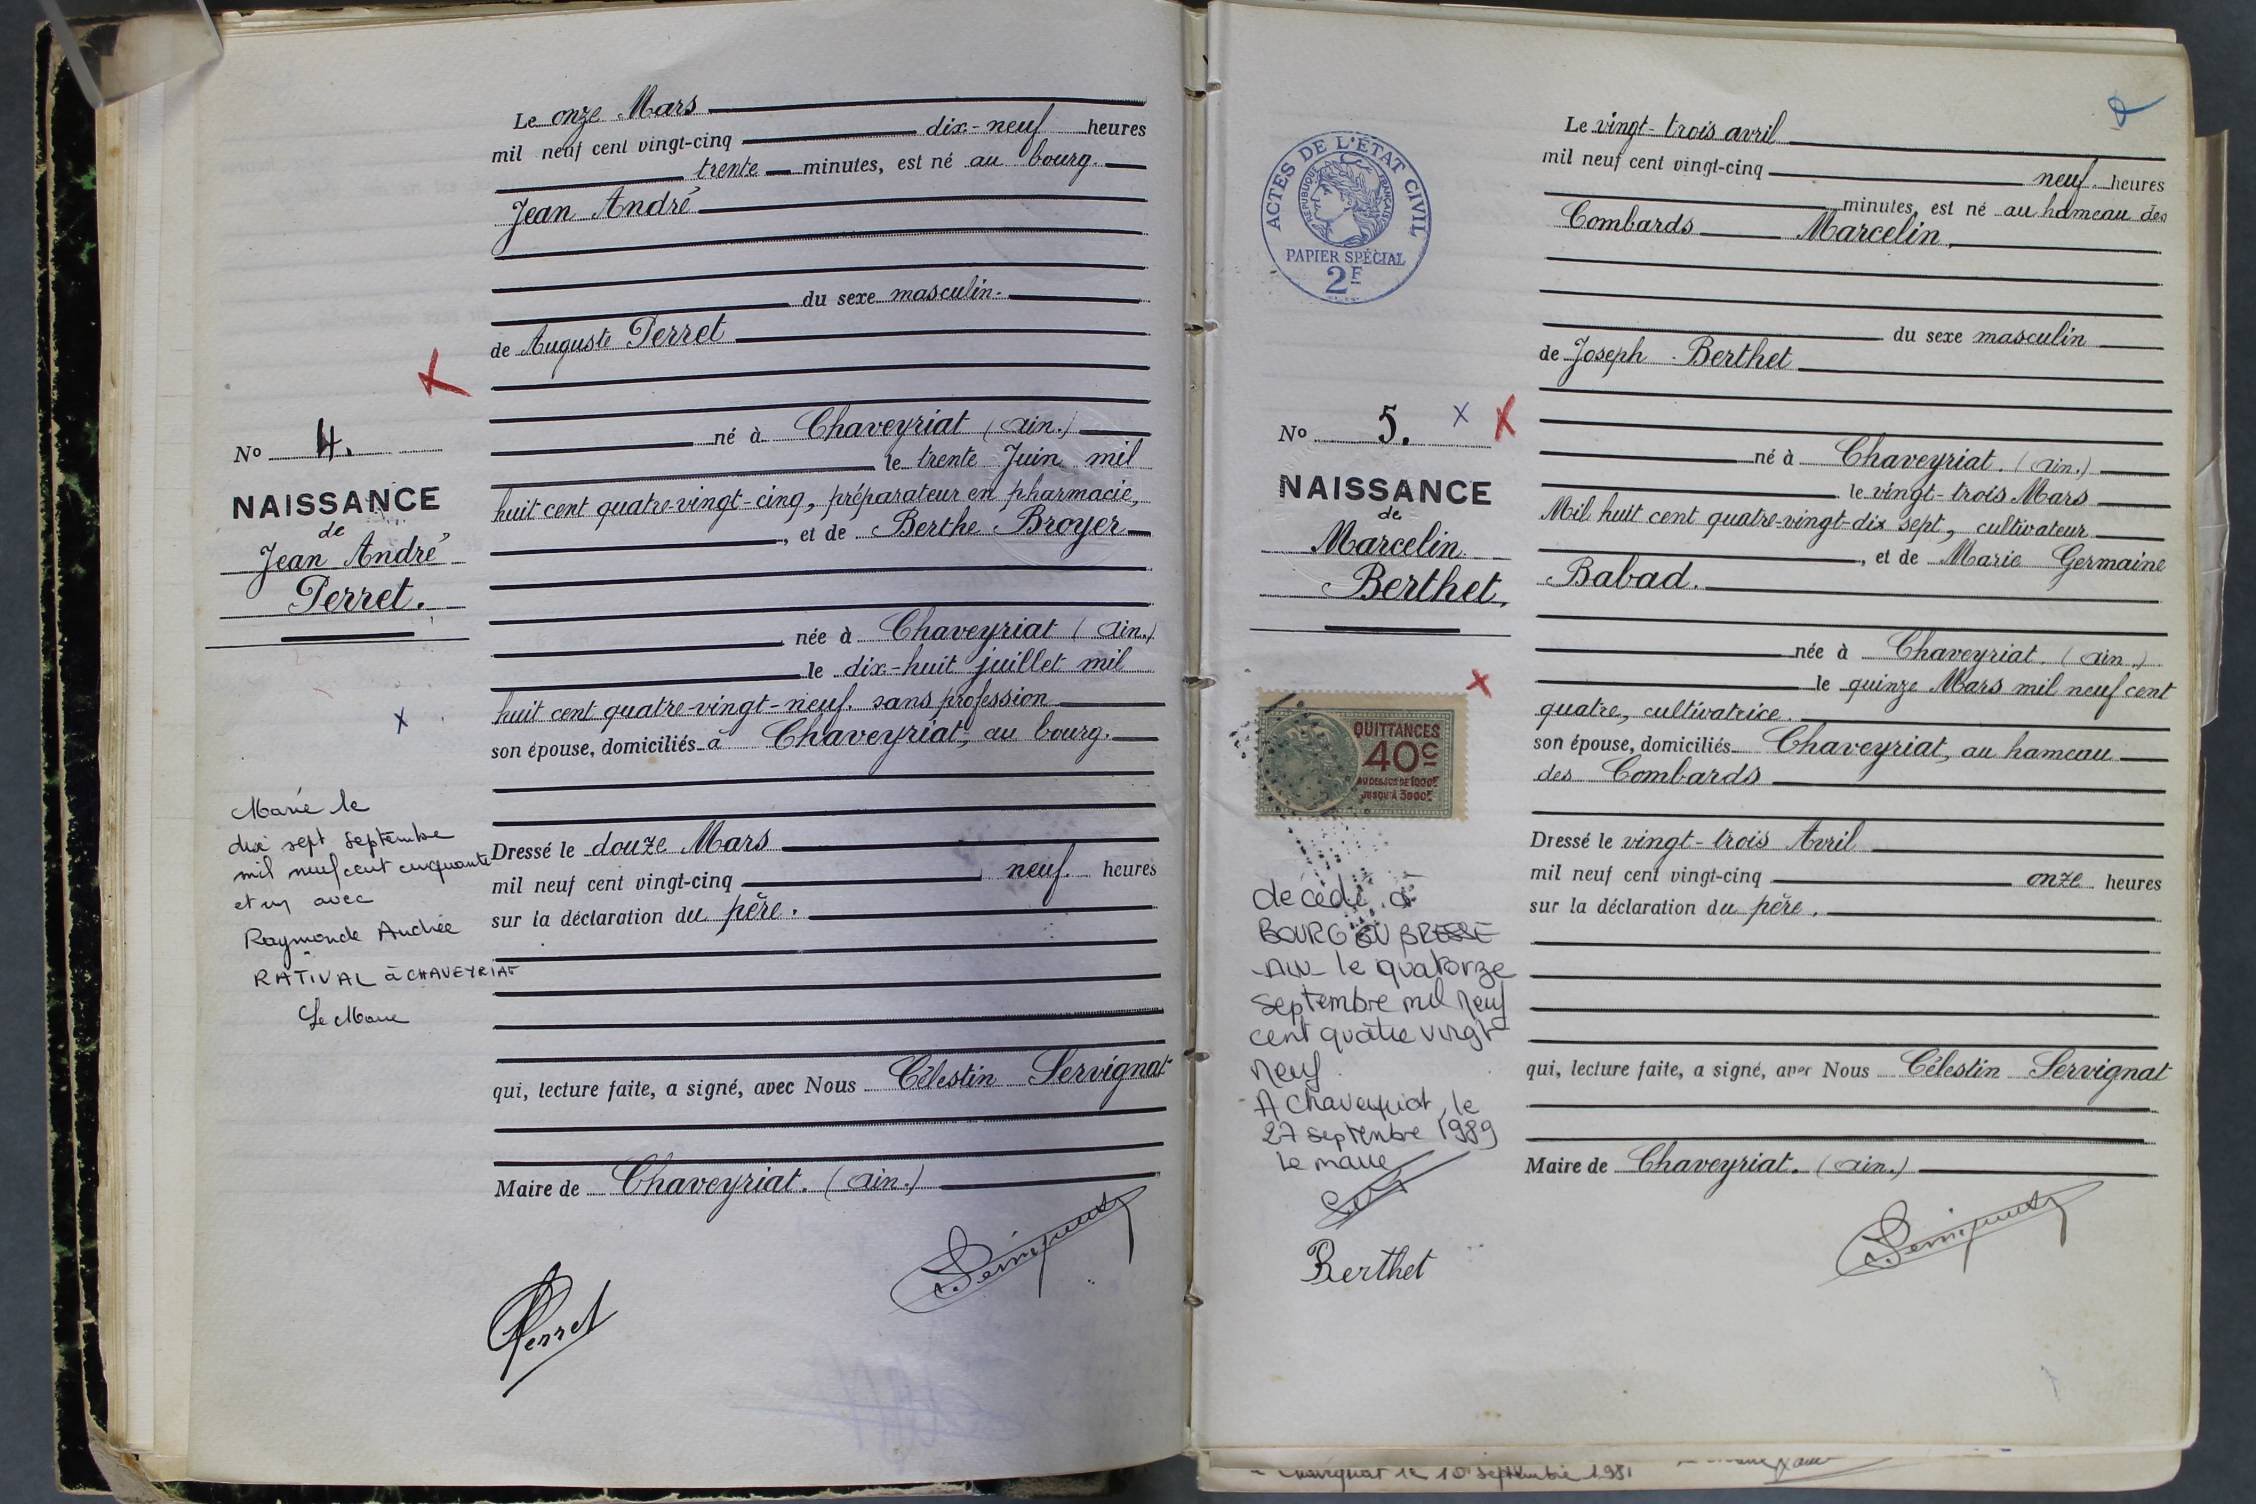 Le onze Mars
mil neuf cent vingt-cinq dix-neuf heures
trente minutes, est né au bourg.
Jean André
du sexe masculin.
de Auguste Perret
né à Chaveyriat (Ain.)
le trente Juin mil
huit cent quatre-vingt-cinq, préparateur en pharmacie,
, et de Berthe Broyer
née à Chaveyriat (Ain.)
le dix-huit juillet mil
huit cent quatre-vingt-neuf. sans profession
son épouse, domiciliés à Chaveyriat, au bourg.
Dressé le douze Mars
mil neuf cent vingt-cinq neuf. heures
sur la déclaration du père.
qui, lecture faite, a signé, avec Nous Célestin Servignat
Maire de Chaveyriat. (Ain.)
Perret
No 4.
NAISSANCE
de
Jean André
Perret.
Marié le
dix sept septembre
mil neuf cent cinquante
et un avec
Raymonde Andrée
RATIVAL à CHAVEYRIAT
Le Maire
ACTES DE L'ÉTAT CIVIL
RÉPUBLIQUE FRANÇAISE
PAPIER SPÉCIAL
2F
Le vingt-trois avril
mil neuf cent vingt-cinq neuf. heures
minutes, est né au hameau des
Combards Marcelin,
du sexe masculin
de Joseph Berthet
né à Chaveyriat. (Ain.)
le vingt-trois Mars
Mil huit cent quatre-vingt-dix sept, cultivateur
, et de Marie Germaine
Babad.
née à Chaveyriat. (Ain.)
le quinze Mars mil neuf cent
quatre, cultivatrice.
son épouse, domiciliés Chaveyriat, au hameau
des Combards
Dressé le vingt-trois Avril
mil neuf cent vingt-cinq onze heures
sur la déclaration du père.
qui, lecture faite, a signé, avec Nous Célestin Servignat
Maire de Chaveyriat. (Ain.)
No 5.
NAISSANCE
de
Marcelin
Berthet,
QUITTANCES
40c
AU DESSUS DE 1000F
JUSQU'À 3000F
décédé à
BOURG BRESSE
le quatorze
septembre mil neuf
cent quatre vingt
neuf.
A Chaveyriat, le
27 septembre 1989
le maire
Berthet
le 10 septembre 1981